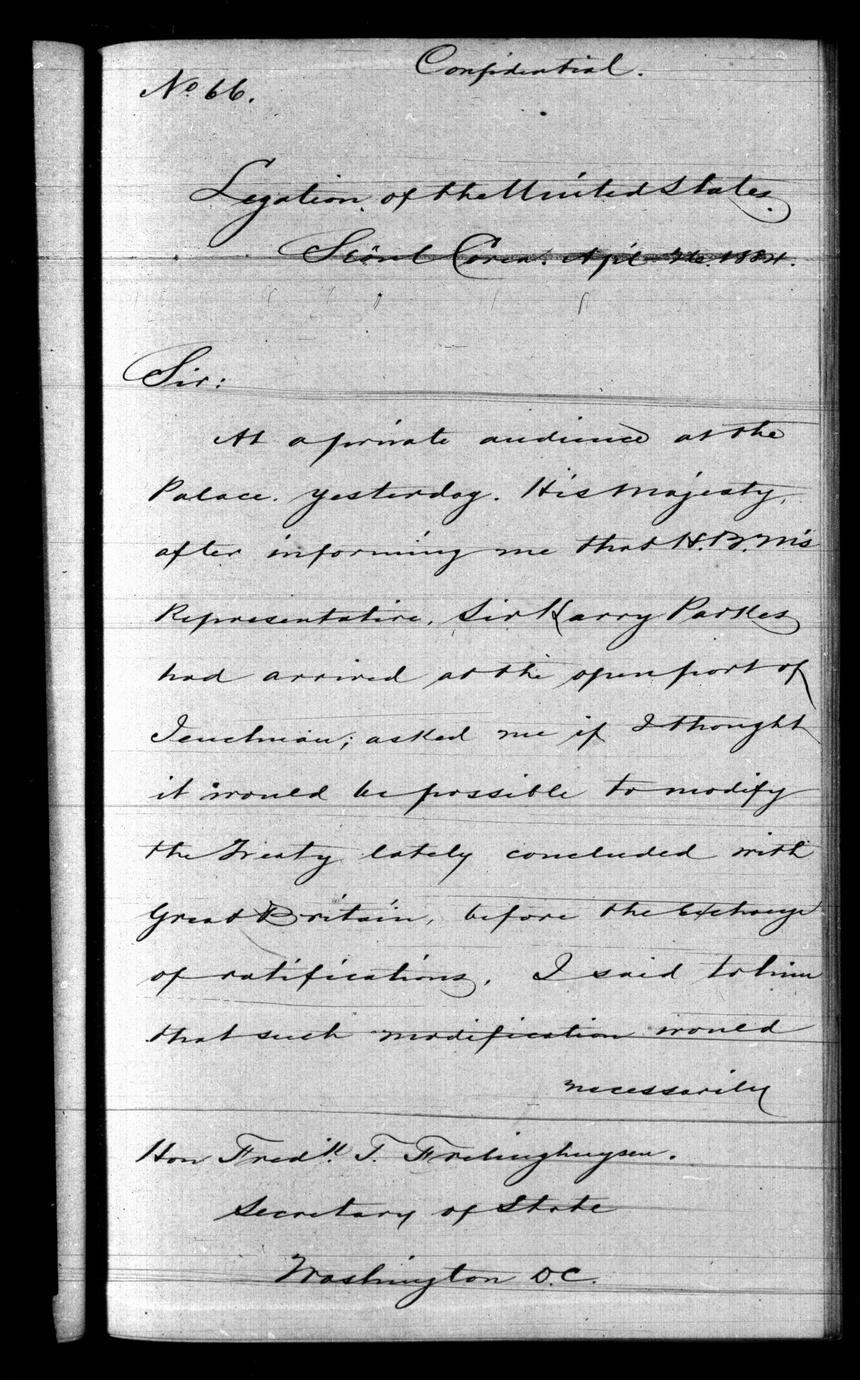 Confidential.
No 66.
Legation of the United States
Sëoul Corea. Apl 26. 1884.
Sir:
At a private audience at the
Palace. yesterday. His Majesty,
after informing me that H.B.M's
Representative, Sir Harry Parkes
had arrived at the open port of
Jenchuan; asked me if I thought
it would be possible to modify
the Treaty lately concluded with
Great Britain, before the exchange
of ratifications. I said to him
that such modification would
necessarily
Hon Fredk. T. Frelinghuysen.
Secretary of State
Washington D.C.